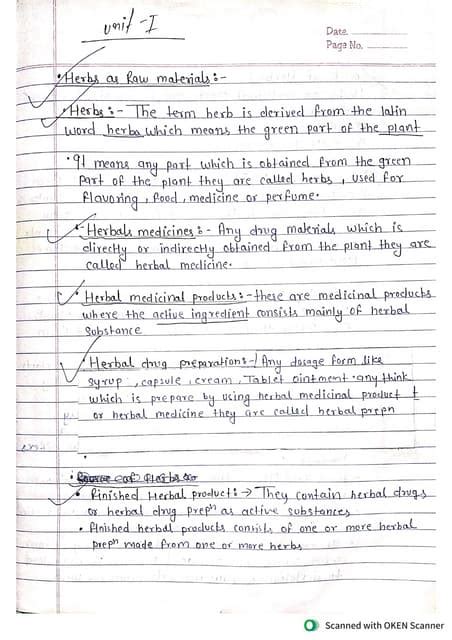 unit-I
Date
Page No.
Herbs as Raw materials:-
Herbs:- The term herb is derived from the latin
word herba which means the green part of the plant
• It means any part which is obtained from the green
part of the plant they are called herbs, used for
flavoring, food, medicine or perfume.
• Herbals medicines:- Any drug materials which is
directly or indirectly obtained from the plant they are
called herbal medicine.
Herbal medicinal products:- these are medicinal products
where the active ingredient consists mainly of herbal
Substance
• Herbal drug preparations:- Any dosage form like
syrup, capsule, cream, Tablet ointment. any think
which is prepare by using herbal medicinal product
or herbal medicine they are called herbal prepn
• Finished Herbal product:→ They contain herbal drugs
or herbal drug prepn as active substances
• finished herbal products consists of one or more herbal
prepn made from one or more herbs
Scanned with OKEN Scanner